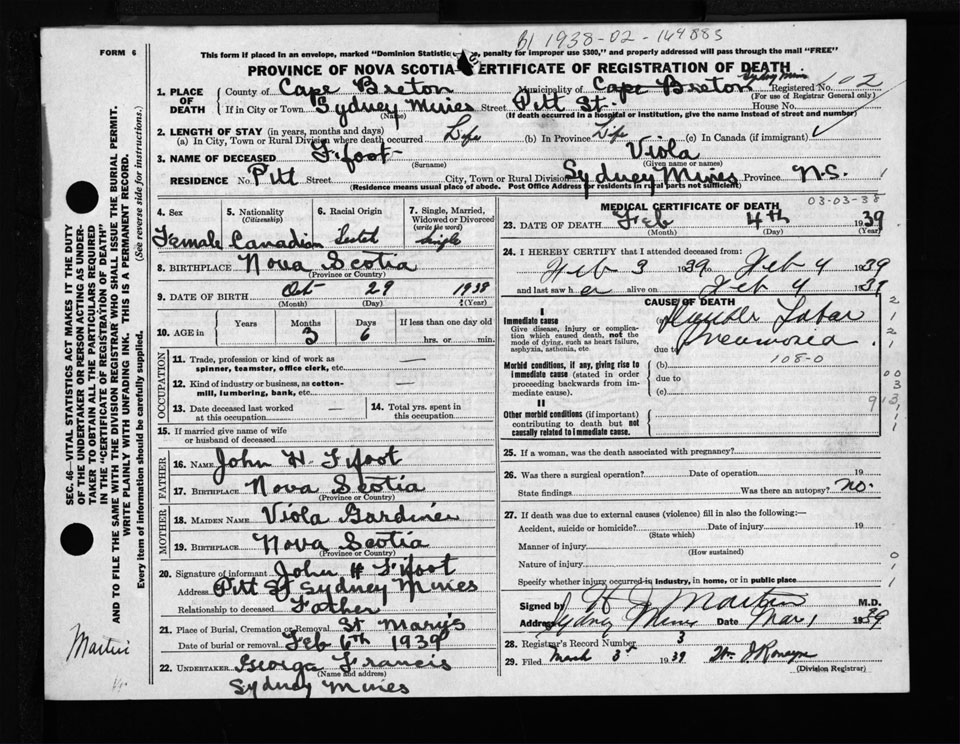 B1 1938-02-164883
FORM 6
This form if placed in an envelope, marked "Dominion Statistic , penalty for improper use $300," and properly addressed will pass through the mail "FREE"
PROVINCE OF NOVA SCOTIA ERTIFICATE OF REGISTRATION OF DEATH
1. PLACE OF DEATH County of Cape Breton Municipality of Cape Breton Sydney Mines Registered No. 202
(For use of Registrar General only)
If in City or Town Sydney Mines Street Pitt St. House No.
(Name) (If death occurred in a hospital or institution, give the name instead of street and number)
2. LENGTH OF STAY (in years, months and days)
(a) In City, Town or Rural Division where death occurred Life (b) In Province Life (c) In Canada (if immigrant) ✓
3. NAME OF DECEASED Fifoot Viola
(Surname) (Given name or names)
RESIDENCE No. Pitt Street City, Town or Rural Division Sydney Mines Province N.S.
(Residence means usual place of abode. Post Office Address for residents in rural parts not sufficient)
4. Sex 5. Nationality (Citizenship) 6. Racial Origin 7. Single, Married, Widowed or Divorced (write the word)
Female Canadian single
8. BIRTHPLACE Nova Scotia
(Province or Country)
9. DATE OF BIRTH Oct 29 1938
(Month) (Day) (Year)
10. AGE in Years Months Days If less than one day old
3 6 hrs. or min.
OCCUPATION
11. Trade, profession or kind of work as spinner, teamster, office clerk, etc. —
12. Kind of industry or business, as cotton-mill, lumbering, bank, etc. —
13. Date deceased last worked at this occupation — 14. Total yrs. spent in this occupation
15. If married give name of wife or husband of deceased
FATHER
16. NAME John H. Fifoot
17. BIRTHPLACE Nova Scotia
(Province or Country)
MOTHER
18. MAIDEN NAME Viola Gardiner
19. BIRTHPLACE Nova Scotia
(Province or Country)
20. Signature of informant John H Fifoot
Address Pitt St Sydney Mines
Relationship to deceased Father
21. Place of Burial, Cremation or Removal St Mary's
Date of burial or removal Feb 6th 1939
22. UNDERTAKER George Francis
(Name and address)
Sydney Mines
MEDICAL CERTIFICATE OF DEATH 03-03-38
23. DATE OF DEATH Feb 4th 1939
(Month) (Day) (Year)
24. I HEREBY CERTIFY that I attended deceased from:
Feb 3 1939 to Feb 4 1939
and last saw h er alive on Feb 4 1939
CAUSE OF DEATH
I
Immediate cause
Give disease, injury or complication which caused death, not the mode of dying, such as heart failure, asphyxia, asthenia, etc
(a) Double Lobar
Pneumonia
due to
Morbid conditions, if any, giving rise to immediate cause (stated in order proceeding backwards from immediate cause).
(b) 108-0
due to
(c)
II
Other morbid conditions (if important) contributing to death but not causally related to immediate cause.
25. If a woman, was the death associated with pregnancy?
26. Was there a surgical operation? Date of operation 19
State findings Was there an autopsy? no.
27. If death was due to external causes (violence) fill in also the following:—
Accident, suicide or homicide? Date of injury 19
(State which)
Manner of injury
(How sustained)
Nature of injury
Specify whether injury occurred in industry, in home, or in public place
Signed by H J Martin M.D.
Address Sydney Mines Date Mar 1 1939
28. Registrar's Record Number 3
29. Filed March 3rd 1939
(Division Registrar)
SEC. 46—VITAL STATISTICS ACT MAKES IT THE DUTY OF THE UNDERTAKER OR PERSON ACTING AS UNDERTAKER TO OBTAIN ALL THE PARTICULARS REQUIRED IN THE "CERTIFICATE OF REGISTRATION OF DEATH" AND TO FILE THE SAME WITH THE DIVISION REGISTRAR WHO SHALL ISSUE THE BURIAL PERMIT.
WRITE PLAINLY WITH UNFADING INK. THIS IS A PERMANENT RECORD.
Every item of information should be carefully supplied. (See reverse side for instructions.)
Martin